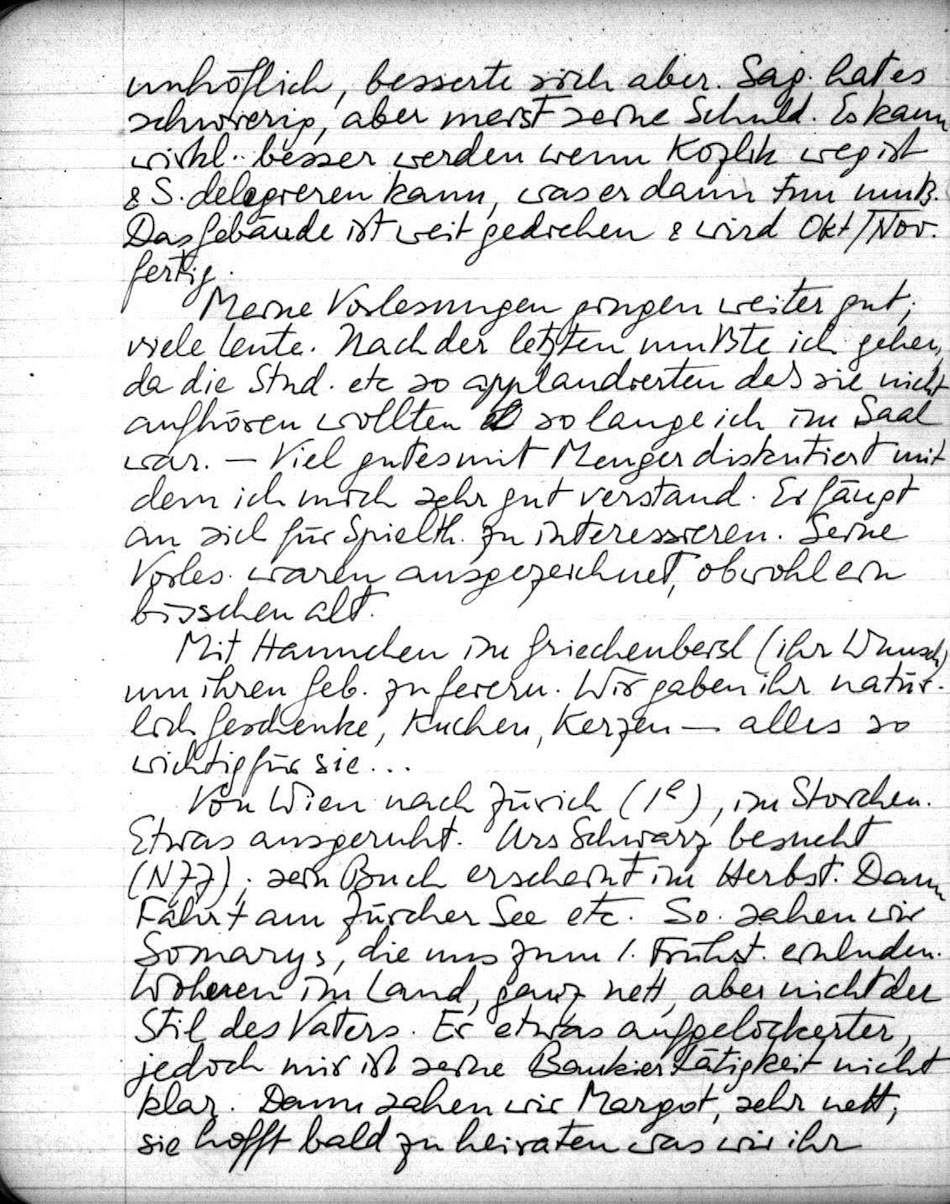 unhöflich, besserte sich aber. Sag. hat es
schwierig, aber meist seine Schuld. Es kann
wirkl. besser werden wenn Kozlik weg ist
& S. delegieren kann, was er dann tun muß.
Das Gebäude ist weit gediehen & wird Okt/Nov.
fertig.
Meine Vorlesungen gingen weiter gut;
viele Leute. Nach der letzten mußte ich gehen,
da die Stud. etc so applaudierten daß sie nicht
aufhören wollten so lange ich im Saal
war. — Viel gutes mit Menger diskutiert mit
dem ich mich sehr gut verstand. Er fängt
an sich für Spielth. zu interessieren. Seine
Vorles. waren ausgezeichnet, obwohl ein
bisschen alt.
Mit Hannchen im Griechenbeisl (ihr Wunsch)
um ihren Geb. zu feiern. Wir gaben ihr natür-
lich Geschenke, Kuchen, Kerzen — alles so
wichtig für sie...
Von Wien nach Zürich (1e), im Storchen.
Etwas ausgeruht. Urs Schwarz besucht
(NZZ); sein Buch erscheint im Herbst. Dann
Fahrt am Zürcher See etc. So. sahen wir
Somarys, die uns zum 1. Frühst. einluden.
Wohnen im Land, ganz nett, aber nicht der
Stil des Vaters. Er etwas aufgelockerter,
jedoch mir ist seine Bankiertätigkeit nicht
klar. Dann sahen wir Margot, sehr nett;
sie hofft bald zu heiraten was wir ihr